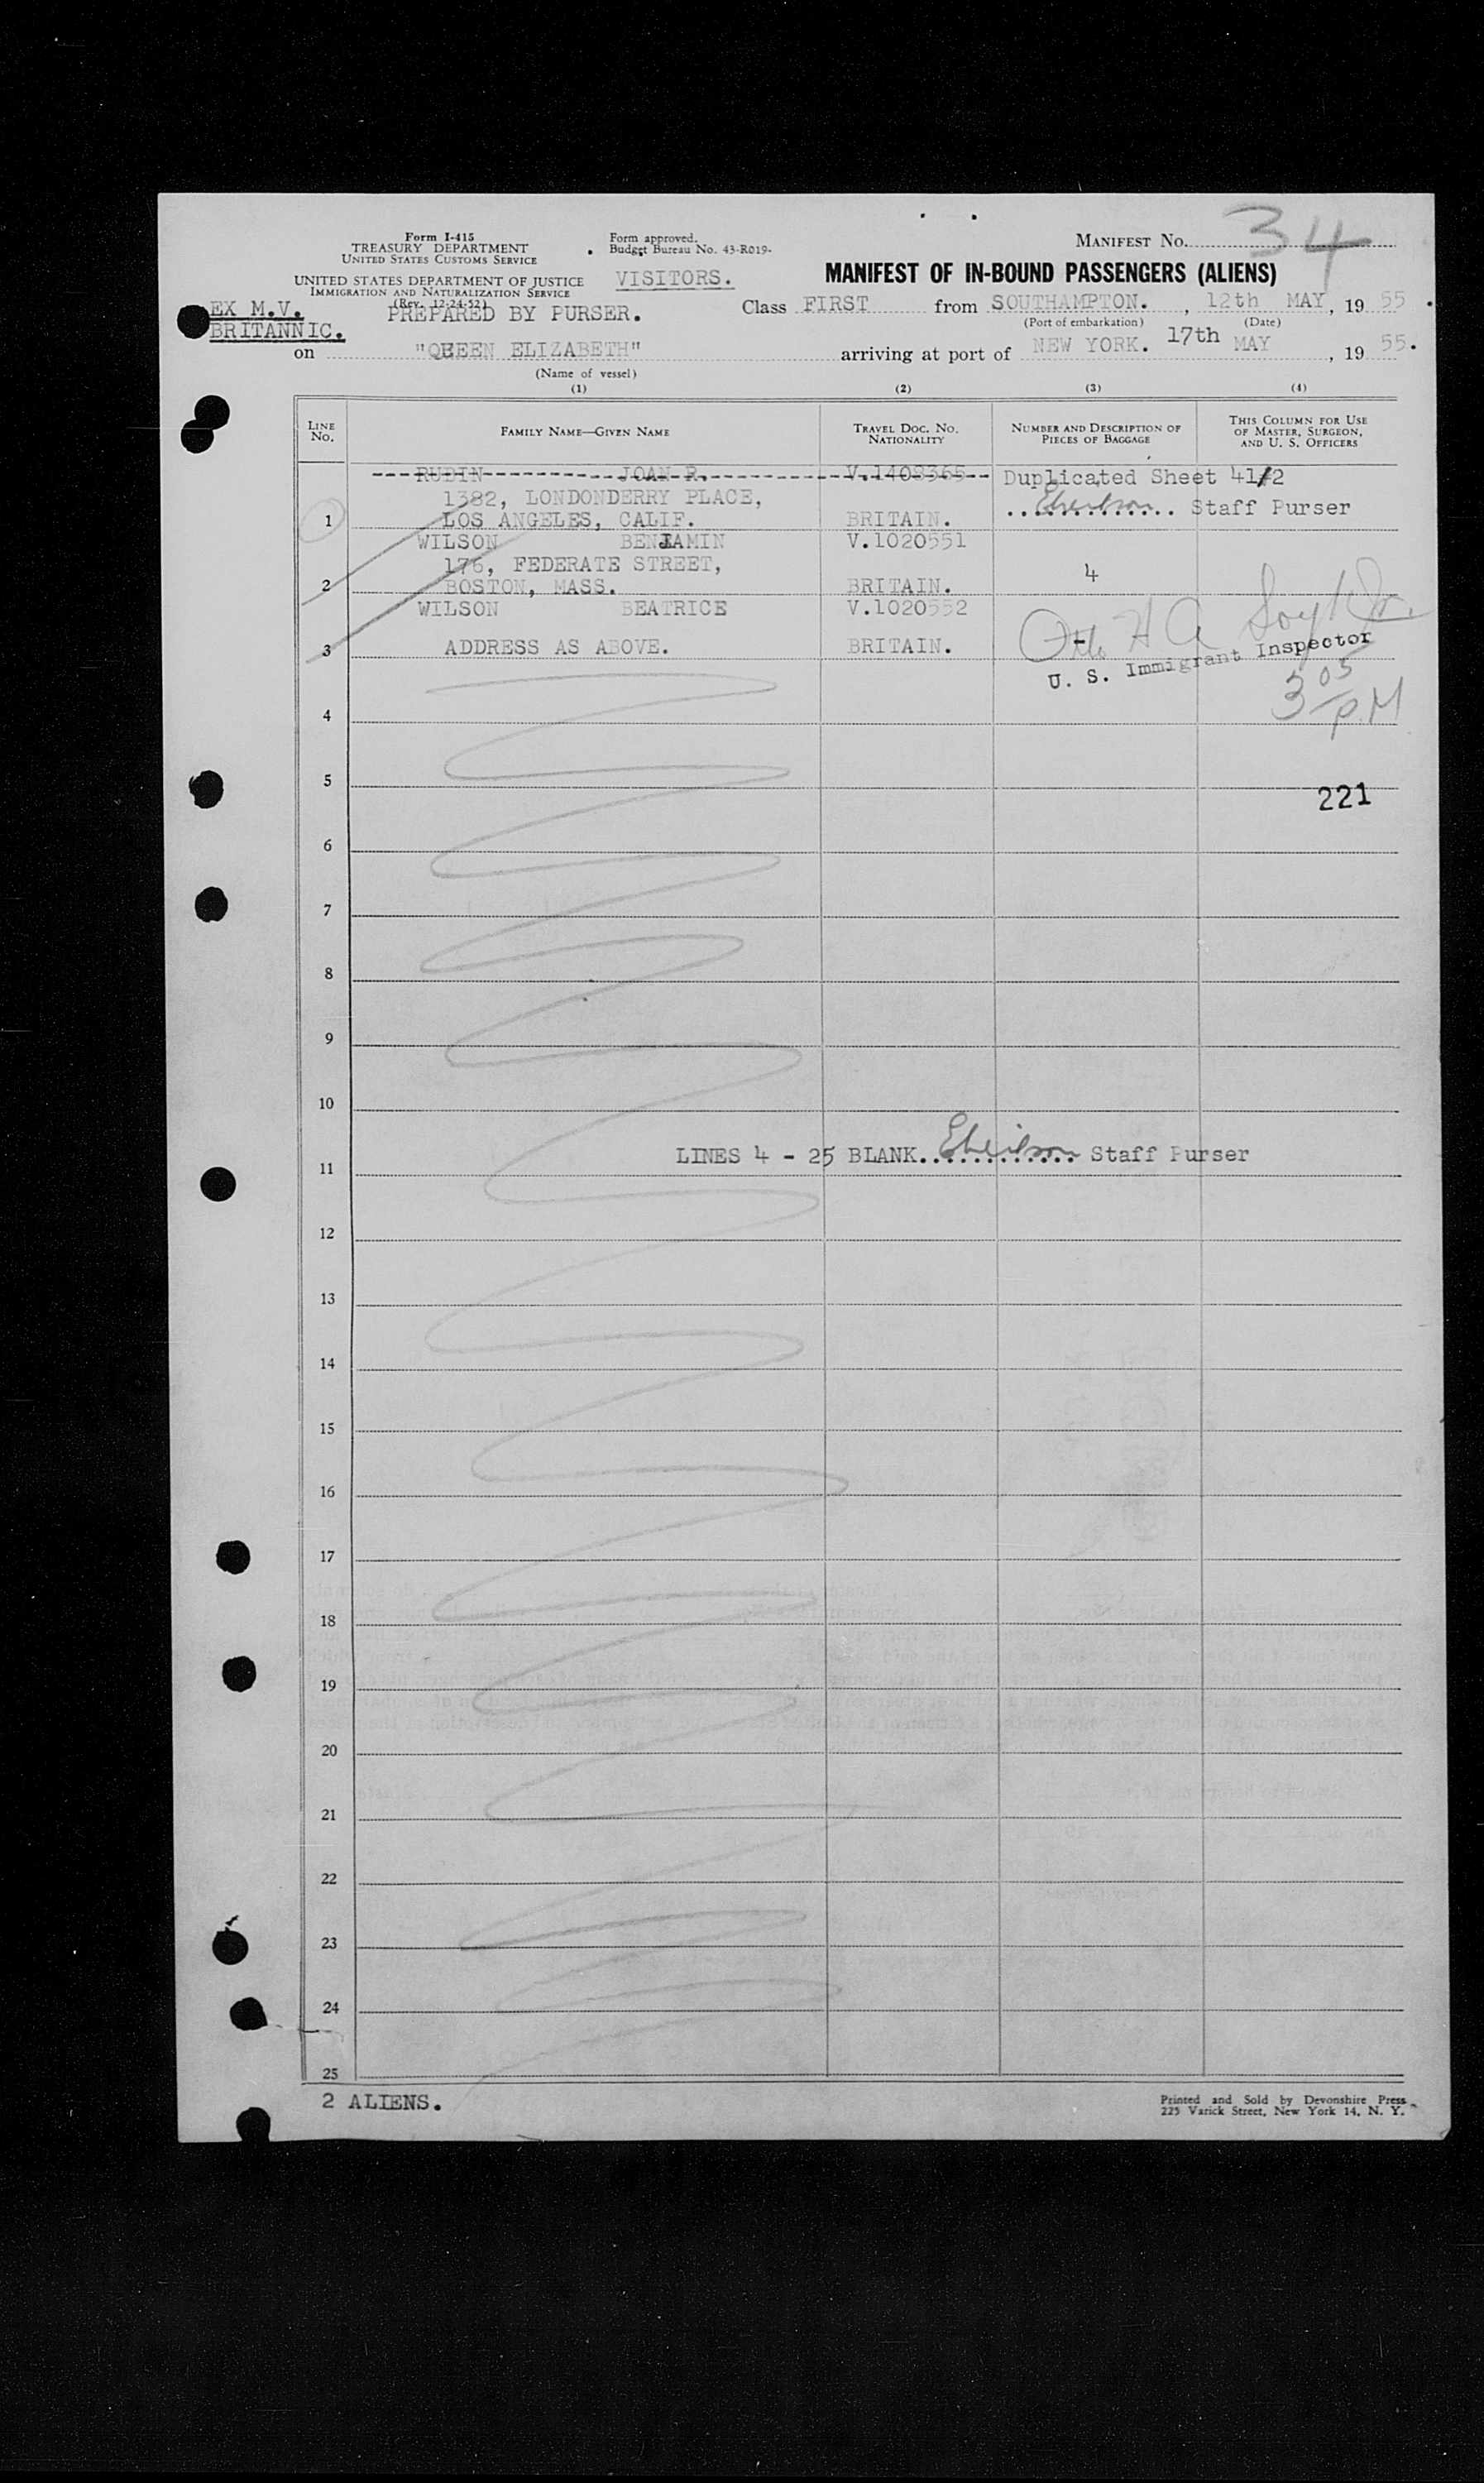 Form I-415
TREASURY DEPARTMENT
UNITED STATES CUSTOMS SERVICE
UNITED STATES DEPARTMENT OF JUSTICE
IMMIGRATION AND NATURALIZATION SERVICE
(Rev. 12-24-52)
Form approved.
Budget Bureau No. 43-R019-
VISITORS.
MANIFEST NO. 34
MANIFEST OF IN-BOUND PASSENGERS (ALIENS)
EX M.V.
BRITANNIC.
PREPARED BY PURSER.
Class FIRST from SOUTHAMPTON. , 12th MAY, 19 55.
(Port of embarkation) (Date)
on "QUEEN ELIZABETH" arriving at port of NEW YORK. 17th MAY , 19 55.
(Name of vessel)
(1) (2) (3) (4)
LINE NO.
FAMILY NAME—GIVEN NAME
TRAVEL DOC. NO. NATIONALITY
NUMBER AND DESCRIPTION OF PIECES OF BAGGAGE
THIS COLUMN FOR USE OF MASTER, SURGEON, AND U. S. OFFICERS
---RUDIN----------JOAN R.----------V.1408365-- Duplicated Sheet 41/2
1382, LONDONDERRY PLACE,
............ Staff Purser
1 LOS ANGELES, CALIF. BRITAIN.
WILSON BENJAMIN V.1020551
176, FEDERATE STREET,
4
2 BOSTON, MASS. BRITAIN.
WILSON BEATRICE V.1020552
3 ADDRESS AS ABOVE. BRITAIN. -
U. S. Immigrant Inspector
3 05 P.M
4
5
221
6
7
8
9
10
LINES 4 - 25 BLANK............ Staff Purser
11
12
13
14
15
16
17
18
19
20
21
22
23
24
25
2 ALIENS.
Printed and Sold by Devonshire Press
225 Varick Street, New York 14, N. Y.